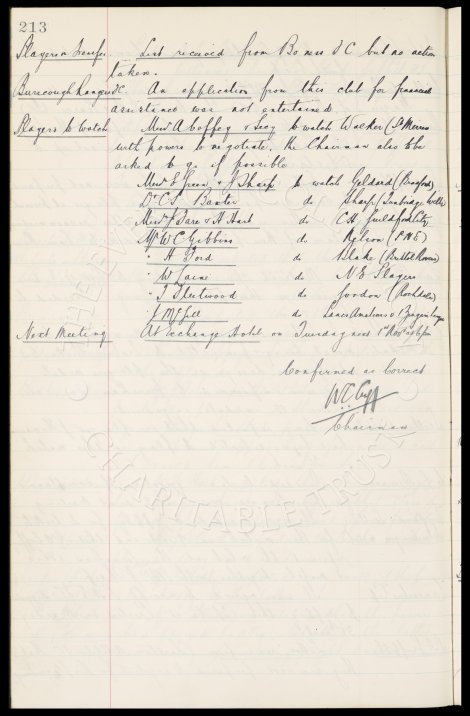 213
Players on Transfer List received from Boness FC but no action
taken.
Burscough Rangers FC. An application from this club for financial
assistance was not entertained
Players to Watch Messrs A Coffey & Secy to watch Walker (St Mirren
with powers to negotiate. The Chairman also to be
asked to go if possible
Messrs E Green & J Sharp to watch Geldard (Bradford)
Dr C S Baxter do Sharp (Tunbridge Wells
Messrs J Dare & H Hart do C.H. Guildford City
Mr W C Gibbins do (P N E)
" H Ford do Blake (Bristol Rovers)
" W Caine do N E Players
" T Fleetwood do Gordon (Rochdale)
do Lancs Amateurs v
Next Meeting At Exchange Hotel on Tuesday next 1st Novr at 6 pm
Confirmed as Correct
W C Cuff
Chairman
CHARITABLE TRUST